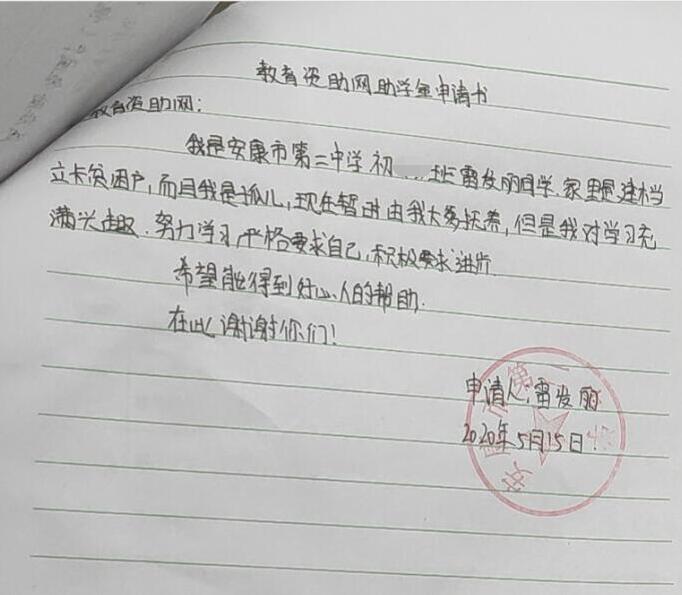 教育资助网助学金申请书
教育资助网:
我是安康市第二中学初 班雷发丽同学,家里是建档
立卡贫困户,而且我是孤儿,现在暂时由我大爹抚养,但是我对学习充
满兴趣.努力学习严格要求自己,积极要求进步
希望能得到好心人的帮助.
在此谢谢你们!
申请人:雷发丽
2020年5月15日